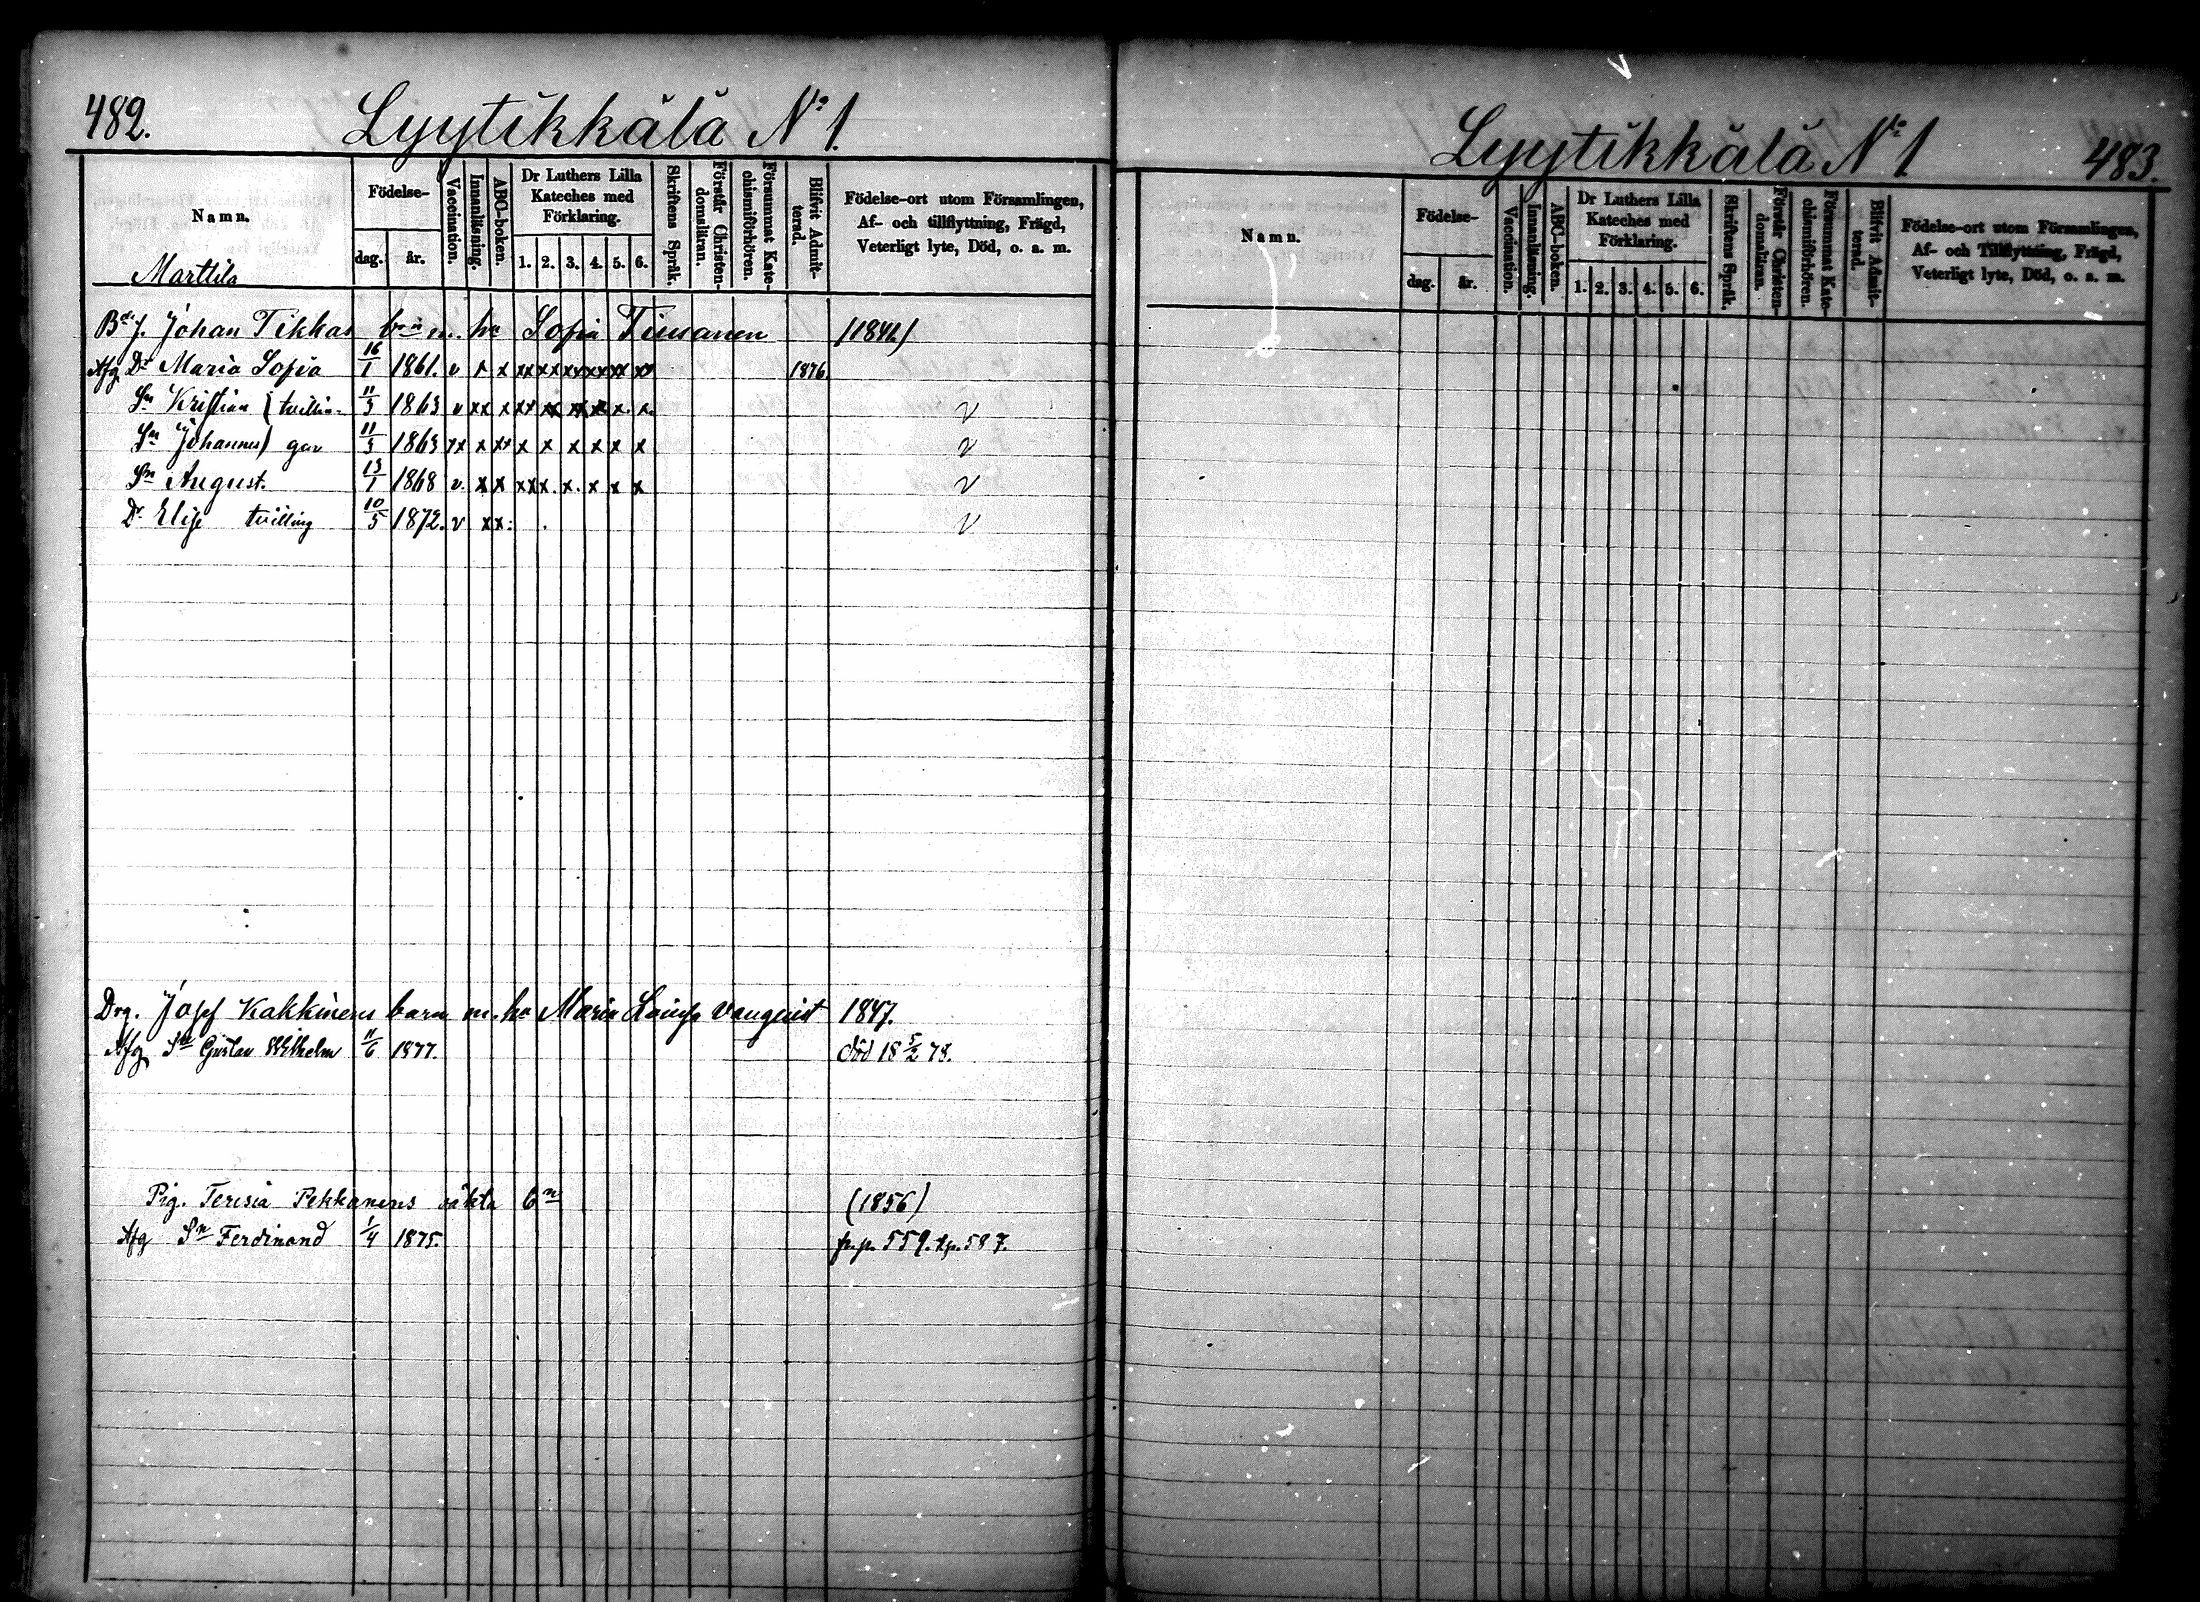 482.
Lyytikkälä No 1.
Namn.
Födelse-
dag.
år.
Vaccination.
Innanläsning.
ABC-boken.
Dr Luthers Lilla
Kateches med
Förklaring.
1. 2. 3. 4. 5. 6.
Skriftens Språk.
Förstår Christen-
domsläran.
Försummat Kate-
chismiförhören.
Blifvit Admit-
terad.
Födelse-ort utom Församlingen,
Af- och tillflyttning, Frägd,
Veterligt lyte, Död, o. a. m.
Marttila
Johan Tikkas bn m. ha Sofia (1841)
Afg Dr Maria Sofia 16/1 1861. v x x xx xx xx xx xx xx 1876.
Sn Kristian (tvillin- 11/3 1863 v xx x xx xx xx x x. x. v
Sn Johannes) gar 11/3 1863 vx x xx x x x x x x v
Sn August. 13/1 1868 v. xx x xx x. x. x x x v
Dr Elise tvilling 10/5 1872. v xx: v
Drg. Josef Kakkinens barn m. ha Maria Lovisa 1847.
Afg Sn Gustav Wilhelm 11/6 1877. död 18 5/2 78.
Pig. Teresia Pekkanens oäkta bn (1856)
Afg Sn Ferdinand 1/4 1875. fr.p. 559. t.p. 587.
Lyytikkälä No 1
483.
Namn.
Födelse-
dag.
år.
Vaccination.
Innanläsning.
ABC-boken.
Dr Luthers Lilla
Kateches med
Förklaring.
1. 2. 3. 4. 5. 6.
Skriftens Språk.
Förstår Christen-
domsläran.
Försummat Kate-
chismiförhören.
Blifvit Admit-
terad.
Födelse-ort utom Församlingen,
Af- och Tillflyttning, Frägd,
Veterligt lyte, Död, o. a. m.